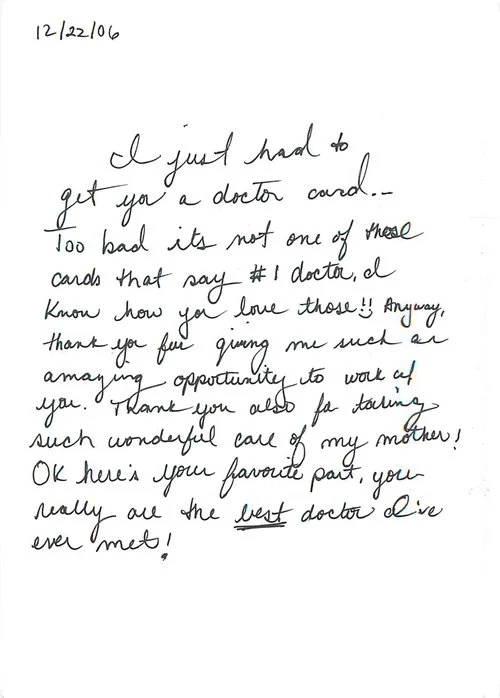 12/22/06
I just had to
get you a doctor card..
Too bad its not one of those
cards that say #1 doctor, I
know how you love those!! Anyway,
thank you for giving me such an
amazing opportunity to work w/
you. Thank you also for taking
such wonderful care of my mother!
OK here's your favorite part, you
really are the best doctor I've
ever met!